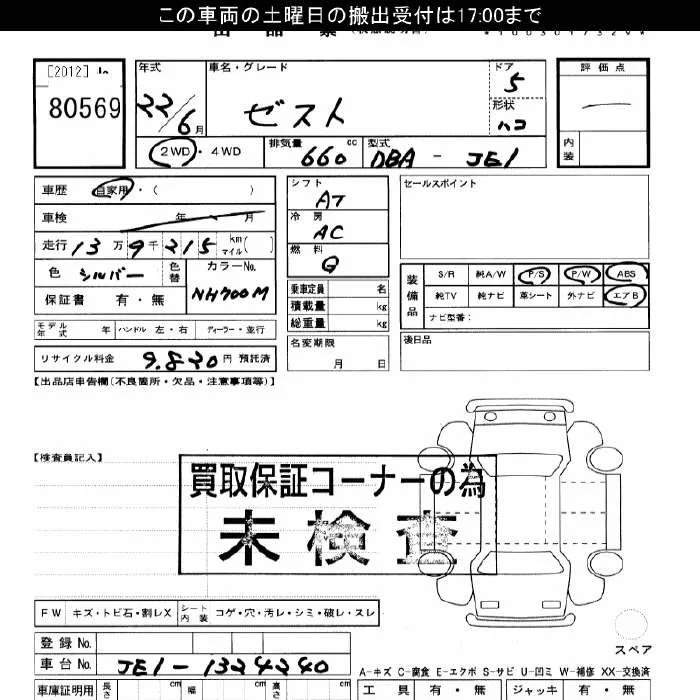 この車両の土曜日の搬出受付は17:00まで
[2012]
80569
年式
22/6月
2WD・4WD
車名・グレード
ゼスト
ドア
5
形状
ハコ
排気量
660 cc
型式
DBA - JE1
評価点
内装
車歴 自家用・( )
車検 年 月
走行 13万9千215 km マイル( )
色 シルバー 色替 カラーNo. NH700M
保証書 有・無
シフト
AT
冷房
AC
燃料
G
乗車定員 名
積載量 kg
総重量 kg
名変期限
月 日
セールスポイント
装備品
S/R 純A/W P/S P/W ABS
純TV 純ナビ 革シート 外ナビ エアB
ナビ型番:
後日品
モデル年式 年 ハンドル 左・右 ディーラー・並行
リサイクル料金 9,820円 預託済
【出品店申告欄(不良箇所・欠品・注意事項等)】
【検査員記入】
買取保証コーナーの為
未検査
FW キズ・トビ石・割レX シート内装 コゲ・穴・汚レ・シミ・破レ・スレ
登録No.
車台No. JE1-1324240
車庫証明用 長さ cm 幅 cm 高さ cm
スペア
A-キズ C-腐食 E-エクボ S-サビ U-凹ミ W-補修 XX-交換済
工具 有・無 ジャッキ 有・無